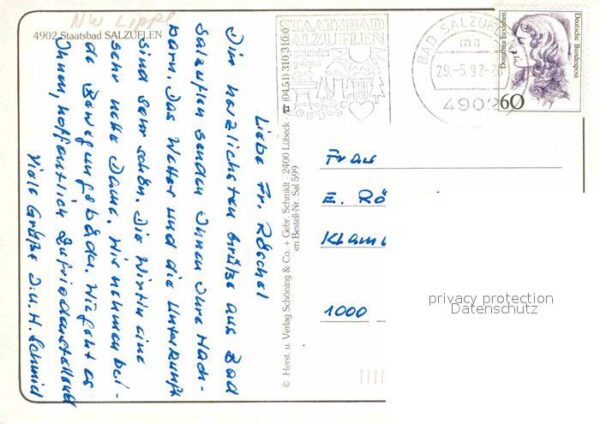 NW Lippe
4902 Staatsbad SALZUFLEN
Liebe Fr. Röschel
Die herzlichsten Grüße aus Bad
Salzuflen senden Ihnen Ihre Nach-
barn. Das Wetter und die Unterkunft
sind sehr schön. Die Wirtin eine
sehr nette Dame. Wir nehmen bei-
de Bewegungsbäder. Wie geht es
Ihnen, hoffentlich zufriedenstellend
Viele Grüße D.u.H. Schmid
© Herst. u. Verlag Schöning & Co. + Gebr. Schmidt · 2400 Lübeck · ☎ (04 51) 31 03 10
en Bestell-Nr. Sal 599
STAATSBAD
SALZUFLEN
BAD SALZUFLEN
29.-5.92.-
4902
Dorothea Erxleben
Deutsche Bundespost
60
Frau
E. Rö
Klam
1000
privacy protection
Datenschutz